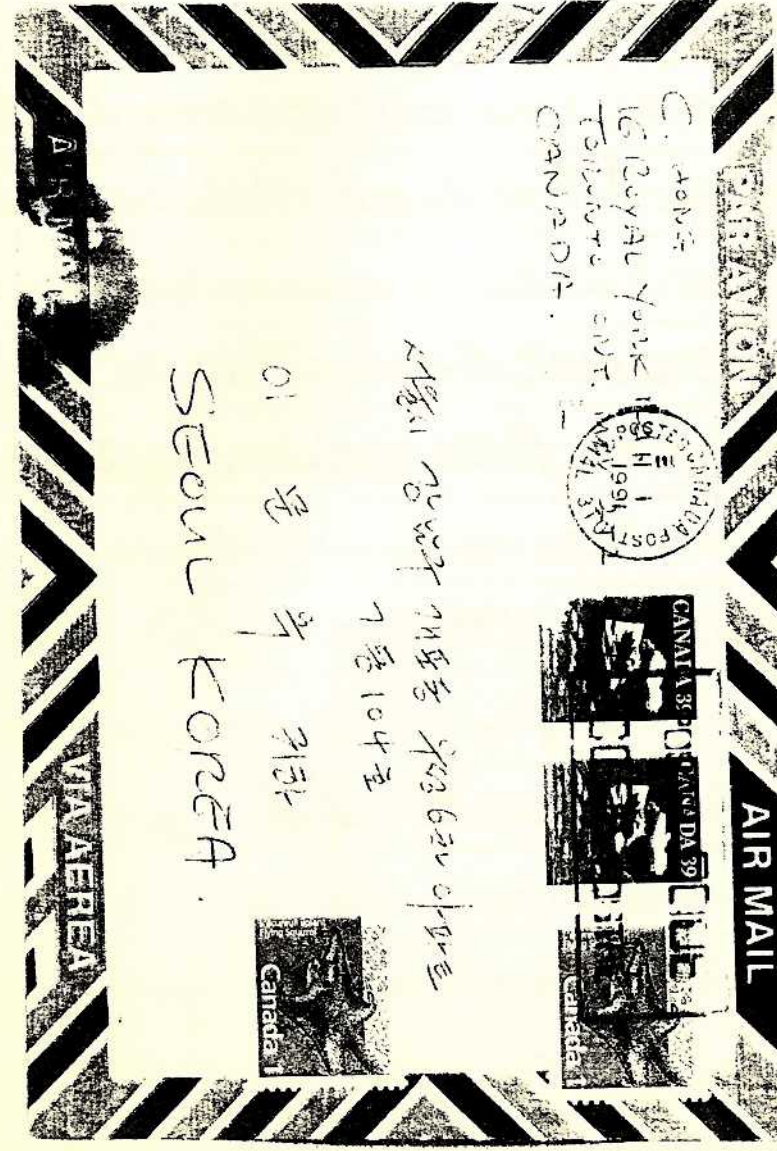 PAR AVION
AIR MAIL
C. HONG
16 ROYAL YORK
TORONTO ONT.
CANADA.
CANADA POSTES
1991
CANADA 39
CANADA 39
Canada 1
서울시 강남구 개포동 우성 6차 아파트
7동 104호
이 문 귀하
SEOUL KOREA.
Flying Squirrel
Canada 1
AIR MAIL
VIA AEREA